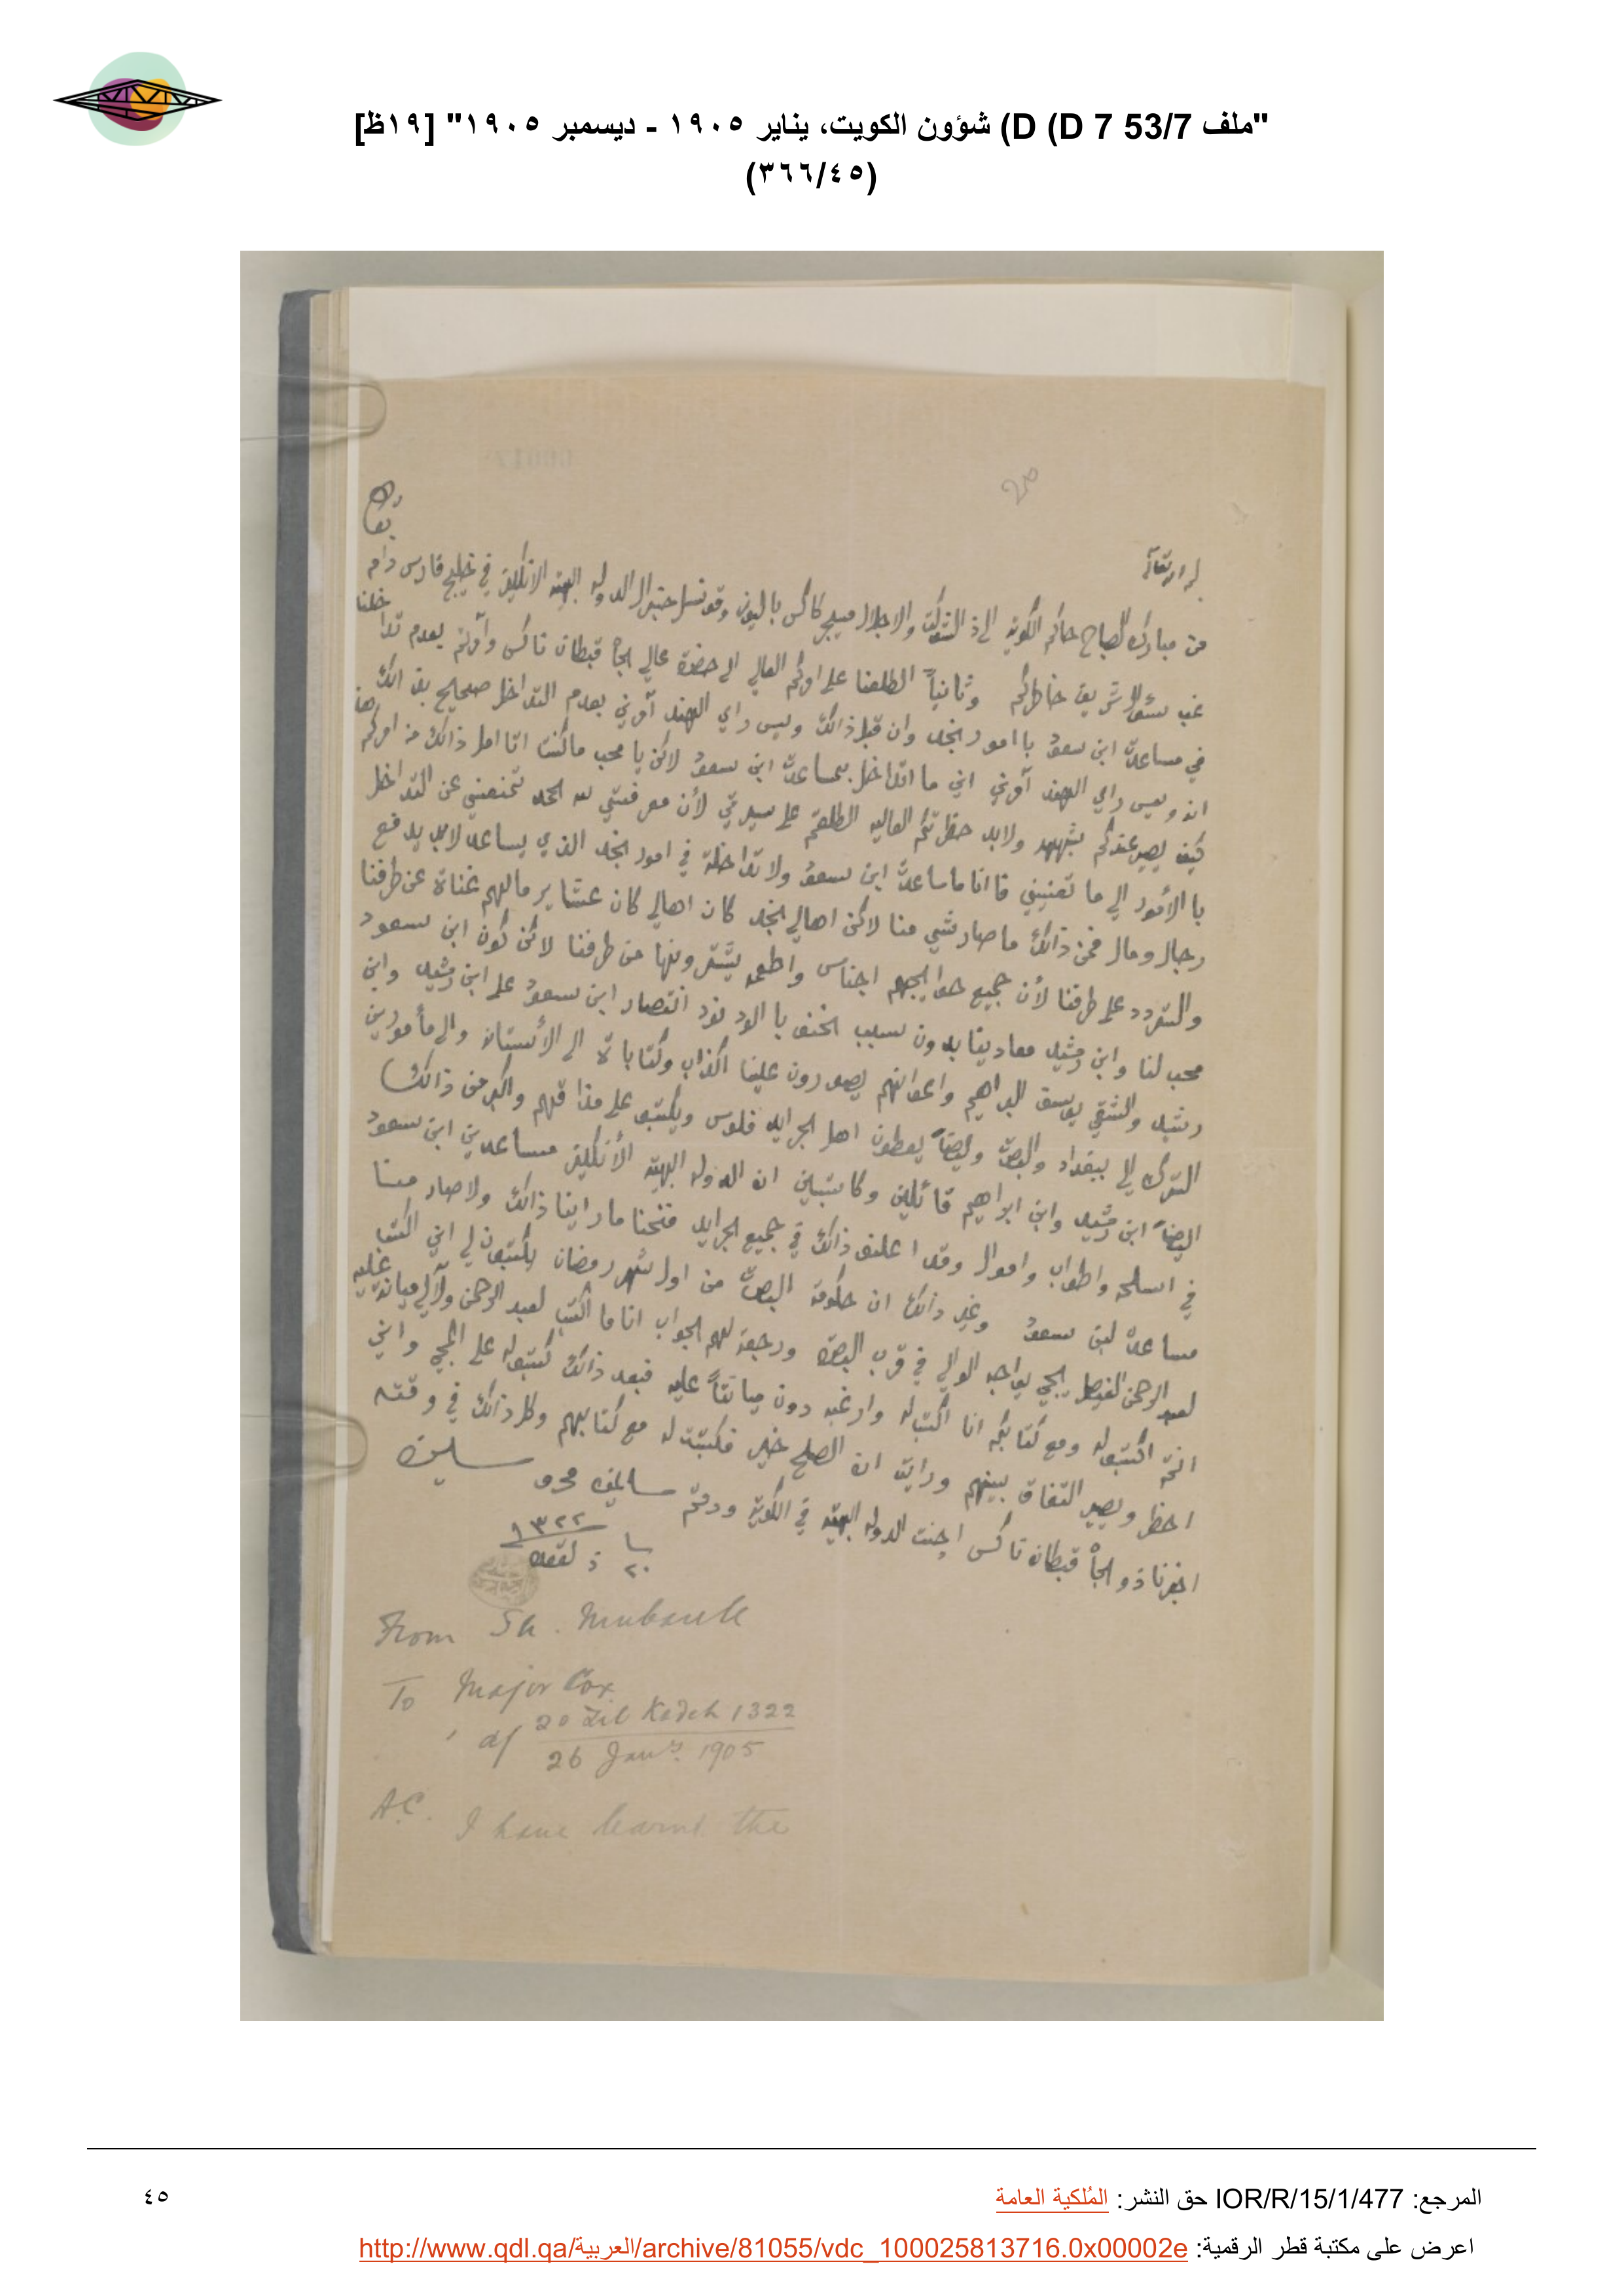 "ملف 53/7 D (D 7) شؤون الكويت، يناير ١٩٠٥ - ديسمبر ١٩٠٥" [١٩ظ]
(٣٦٦/٤٥)
20
من مبارك الصباح حاكم الكويت الى ذ الشوكت والاجلال ميجر كاكس باليوز وقونسل جنرال الدوله البهية الانكليز في خليج فارس دام
غب سؤال شريف خاطركم وثانياً اطلعنا على امركم العالي الى حضرة عالي الجاه قبطان ناكس وامرتم بعدم تداخلنا
في مساعدت ابن سعود با امور نجد وان قبل ذالك ويس راي الهند آمرني بعدم التداخل صحيح
انه ويس راي الهند آمرني اني ما اتداخل بمساعدت ابن سعود لاكن يا محب ماكنت انا امل ذالك من امركم
كيف يصير عندكم ولابد حظرتكم العاليه اطلعتم على سيرتي لأن معرفتي لله الحمد تمنعني عن التداخل
با الأمور الي ما تعنيني فا انا ماساعدت ابن سعود ولا تداخلة في امور نجد الذي يساعد لابد يدفع
رجال ومال فمن ذالك ما صار شي منا لاكن اهالي نجد كان اهالي كان عشاير مالهم غناة عن طرفنا
والتردد على طرفنا لأن جميع حوايجهم اجناس واطعمه يشترونها من طرفنا لاكن كون ابن سعود
محب لنا وابن رشيد معادينا بدون سبب انتصار ابن سعود على ابن رشيد وابن
رشيد والشقي يوسف البراهيم واعوانهم يصورون علينا اكذاب وكتابات الى الأستانه والى مأمورين
الترك الي ببغداد والبصرة وايضاً يعطون اهل الجرايد فلوس ويكتبو على مذاقهم واكبر من ذالك
ايضاً ابن رشيد وابن ابراهيم قائلين وكاتبين ان الدوله البهية الأنكليز مساعدين ابن سعود
في اسلحه واطواب واموال وقد اعلنو ذالك في جميع الجرايد فنحنا ما راينا ذالك ولا صار منا
مساعدة لبن سعود وغير ذالك ان حكومة البصرة من اول شهر رمضان يكتبون لي اني اكتب
لعبد الرحمن الفيصل يجي يواجه الوالي في قرب البصرة ورجعة لهم الجواب انا ما اكتب لعبد الرحمن
انتم اكتبو له ومع كتابكم انا اكتب له وارغبه دون ميانتاً عليه فبعد ذالك كتبو له على المجي واني
احظر ويصير اتفاق بينهم ورايت ان الصلح خير فكتبت له مع كتابهم وكل ذالك في وقته
اخبرنا ذو الجاه قبطان ناكس اجنت الدوله البهية في الكويت ودمتم سالمين محروسين
٢٠ ذ لقعده ١٣٢٢
From Sh. Mubarak
To Major Cox
d/ 20 Zil Kadeh 1322
26 Jany. 1905
A.C.
I have learnt the
المرجع: IOR/R/15/1/477 حق النشر: المُلكية العامة
٤٥
اعرض على مكتبة قطر الرقمية: http://www.qdl.qa/العربية/archive/81055/vdc_100025813716.0x00002e